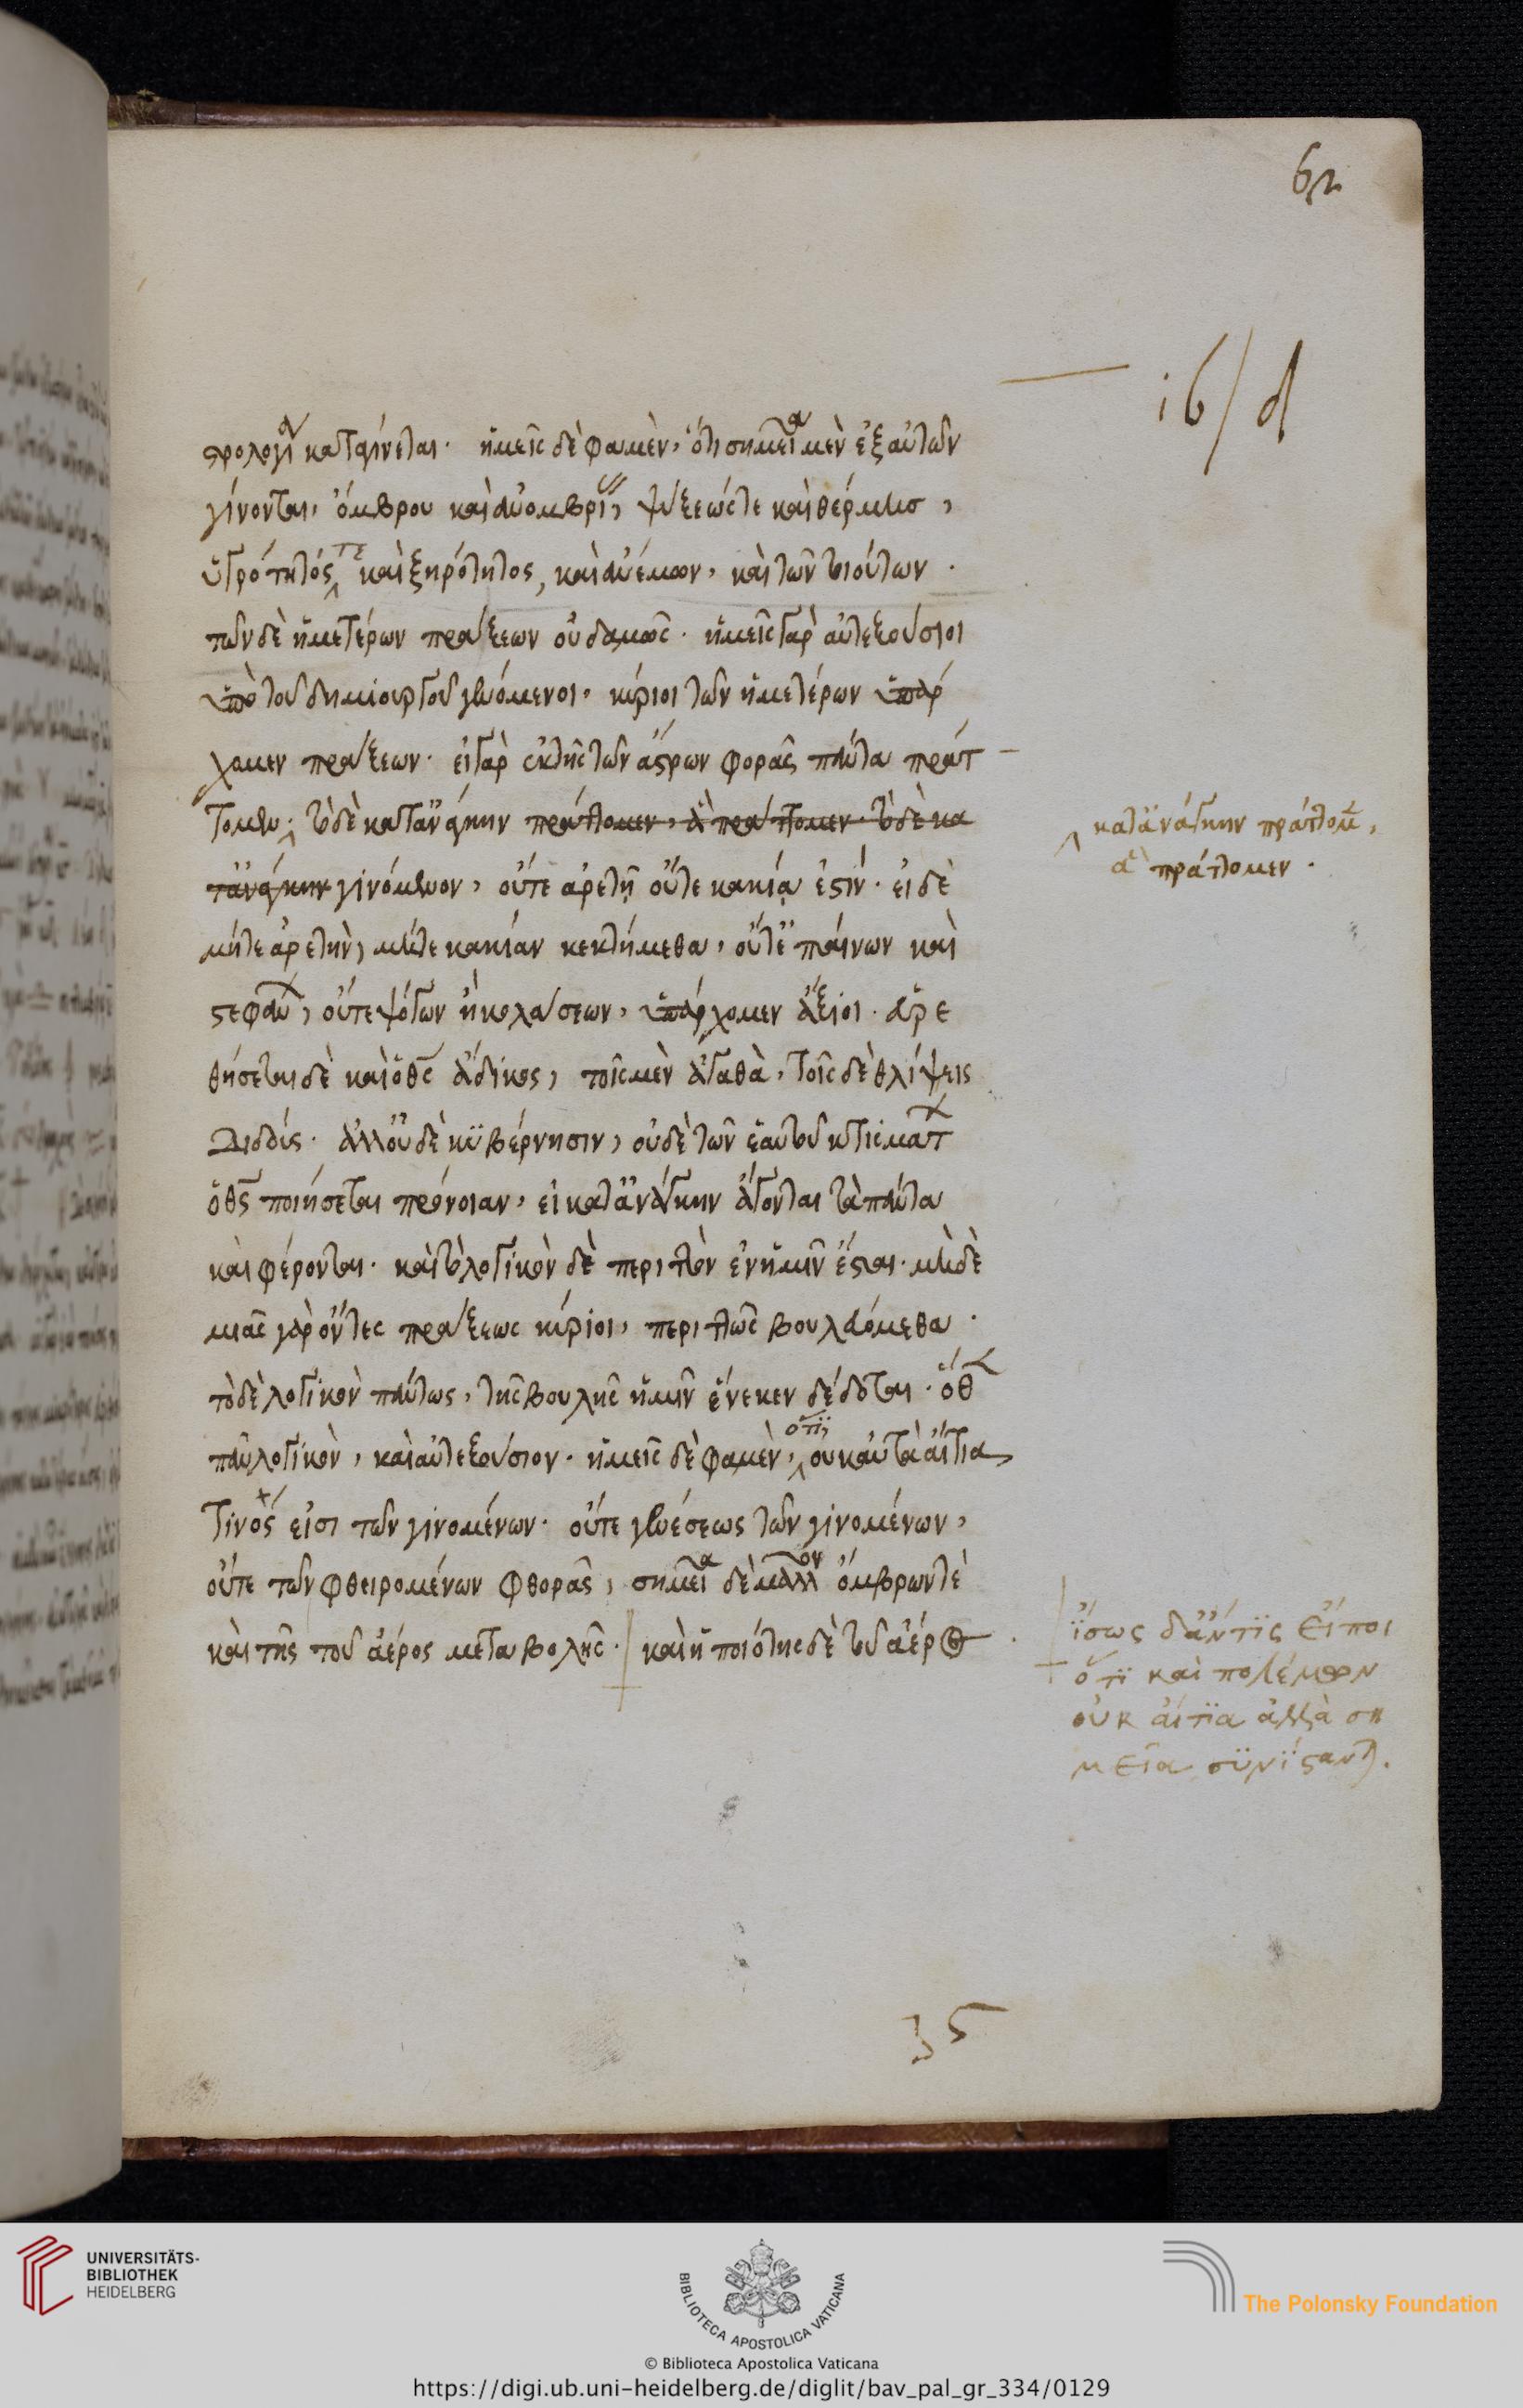 62
ιβ / d
στρολογία κατγίνεται. ἡμεῖς δὲ φαμὲν, ὅτι σημεῖα μὲν ἐξ αὐτῶν
γίνονται, ὄμβρου καὶ ἀνομβρίας, ψύξεώς τε καὶ θέρμης,
ὑγρότητός τε καὶ ξηρότητος, καὶ ἀνέμων, καὶ τῶν τοιούτων.
τῶν δὲ ἡμετέρων πράξεων οὐδαμῶς. ἡμεῖς γὰρ αὐτεξούσιοι
ὑπὸ τοῦ δημιουργοῦ γενόμενοι, κύριοι τῶν ἡμετέρων ὑπάρ
χομεν πράξεων. εἰ γὰρ ἐκ τῆς τῶν ἄστρων φορᾶς πάντα πράτ
τομεν, τὸ δὲ κατ ἀνάγκην πράττομεν, ἃ πράττομεν. τὸ δὲ κα
τ ἀνάγκην γινόμενον, οὔτε ἀρετὴ οὔτε κακία ἐστίν. εἰ δὲ
κατ ἀνάγκην πράττομεν,
ἃ πράττομεν.
μήτε ἀρετὴν, μήτε κακίαν κεκτήμεθα, οὔτε ἐπαίνων καὶ
στεφάνων, οὔτε ψόγων ἢ κολάσεων, ὑπάρχομεν ἄξιοι. εὑρε
θήσεται δὲ καὶ ὁ θς ἄδικος, τοῖς μὲν ἀγαθὰ, τοῖς δὲ θλίψεις
διδούς. ἀλλ οὐδὲ κυβέρνησιν, οὐδὲ τῶν ἑαυτοῦ κτισμάτων
ὁ θς ποιήσεται πρόνοιαν, εἰ κατ ἀνάγκην ἄγονται τὰ πάντα
καὶ φέρονται. καὶ τὸ λογικὸν δὲ περιττὸν ἐν ἡμῖν ἔσται. μηδε
μιᾶς γὰρ ὄντες πράξεως κύριοι, περιττῶς βουλευόμεθα.
τὸ δὲ λογικὸν πάντως, τῆς βουλῆς ἡμῖν ἕνεκεν δέδοται. ὅθεν
πᾶν λογικὸν, καὶ αὐτεξούσιον. ἡμεῖς δὲ φαμὲν, ὅτι οὐκ αὐτὰ αἴτια
τινός εἰσι τῶν γινομένων. οὔτε γενέσεως τῶν γινομένων,
οὔτε τῶν φθειρομένων φθορᾶς, σημεῖα δὲ μᾶλλον ὄμβρων τὲ
καὶ τῆς τοῦ ἀέρος μεταβολῆς. καὶ ἡ ποιότης δὲ τοῦ ἀέρος
ἴσως δ ἄν τις εἴποι
ὅτι καὶ πολέμων
οὐκ αἴτια ἀλλὰ ση
μεῖα συνίστανται.
35
UNIVERSITÄTS-
BIBLIOTHEK
HEIDELBERG
BIBLIOTECA APOSTOLICA VATICANA
The Polonsky Foundation
© Biblioteca Apostolica Vaticana
https://digi.ub.uni-heidelberg.de/diglit/bav_pal_gr_334/0129